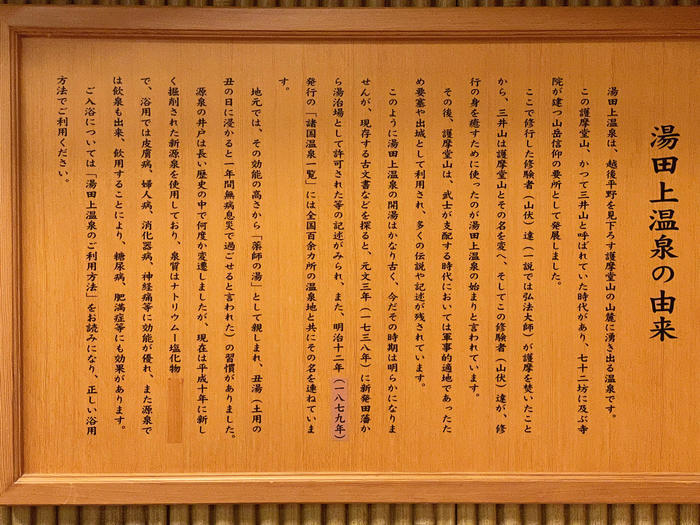 湯田上温泉の由来
湯田上温泉は、越後平野を見下ろす護摩堂山の山麓に湧き出る温泉です。
この護摩堂山、かつて三井山と呼ばれていた時代があり、七十二坊に及ぶ寺
院が建つ山岳信仰の要所として発展しました。
ここで修行した修験者（山伏）達（一説では弘法大師）が護摩を焚いたこと
から、三井山は護摩堂山とその名を変へ、そしてこの修験者（山伏）達が、修
行の身を癒すために使ったのが湯田上温泉の始まりと言われています。
その後、護摩堂山は、武士が支配する時代においては軍事的適地であったた
め要塞や出城として利用され、多くの伝説や記述が残されています。
このように湯田上温泉の開湯はかなり古く、今だその時期は明らかになりま
せんが、現存する古文書などを探ると、元文三年（一七三八年）に新発田藩か
ら湯治場として許可された等の記述がみられ、また、明治十二年（一八七九年）
発行の「諸国温泉一覧」には全国百余カ所の温泉地と共にその名を連ねていま
す。
地元では、その効能の高さから「薬師の湯」として親しまれ、丑湯（土用の
丑の日に浸かると一年間無病息災で過ごせると言われた）の習慣がありました。
源泉の井戸は長い歴史の中で何度か変遷しましたが、現在は平成十年に新し
く掘削された新源泉を使用しており、泉質はナトリウムー塩化物
で、浴用では皮膚病、婦人病、消化器病、神経痛等に効能が優れ、また源泉で
は飲泉も出来、飲用することにより、糖尿病、肥満症等にも効果があります。
ご入浴については「湯田上温泉のご利用方法」をお読みになり、正しい浴用
方法でご利用ください。